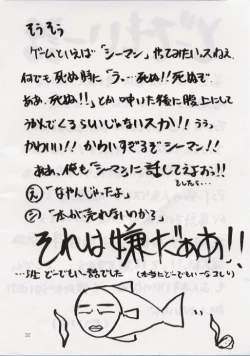 そうそう
ゲームといえば「シーマン」やってみたいスねえ。
何でも死ぬ時に「う…死ぬ!!死ぬぞ
ああ、死ぬ!!」とか呻いた後に腹上にして
うかんでくるらしいじゃないスか!!ううっ
かわいい!!かわいすぎるぞシーマン!!
ああ、俺も「シーマンに話してえよおっ!!
としたら…
え「なやんじゃったよ」
ど「本が売れないのわかる」
それは嫌だぁあ!!
…以上 どーでもいー話でした
(本当にどーでもいーなコレ)
32